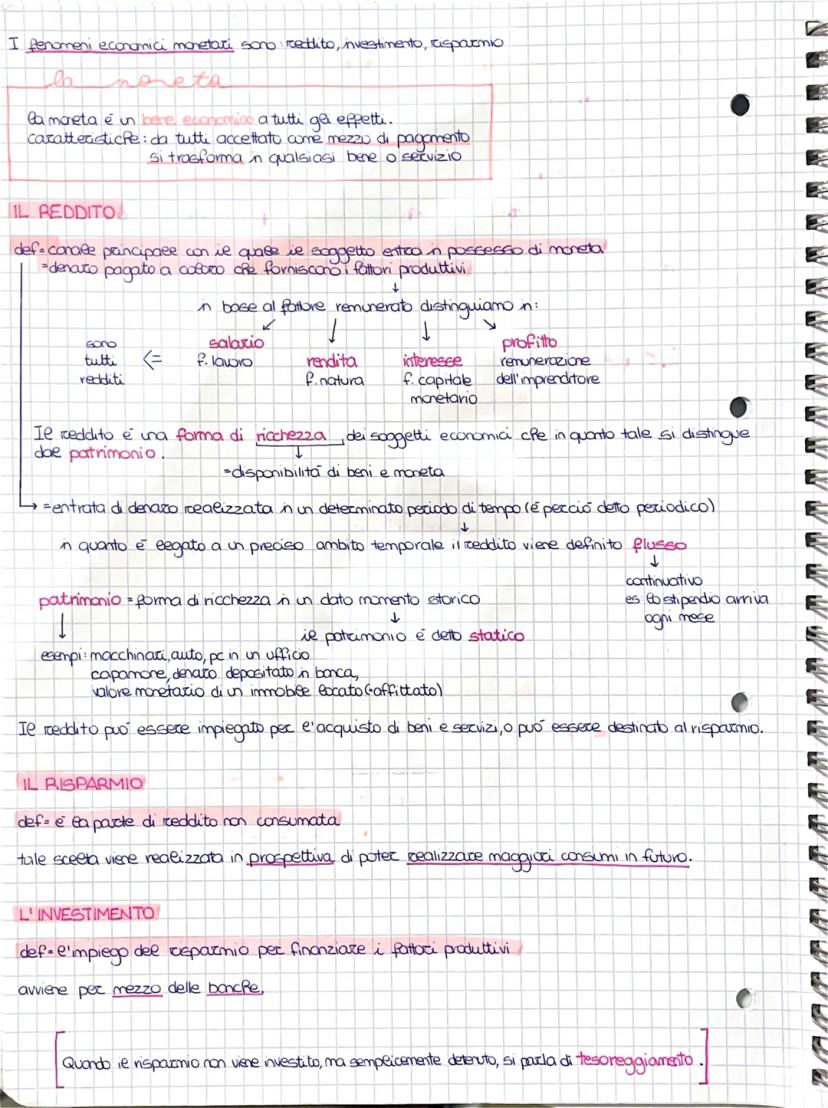 I fenomeni economici monetari sono: reddito, investimento, risparmio
la moneta
la moneta é un bene economico a tutti gli effetti.
caratteristiche: da tutti accettato come mezzo di pagamento
si trasforma in qualsiasi bene o servizio
IL REDDITO
def= canale principale con il quale il soggetto entra in possesso di moneta
=denaro pagato a coloro che forniscono i fattori produttivi
↓
in base al fattore remunerato distinguiamo in:
sono tutti redditi <= salario f. lavoro
rendita f. natura
interesse f. capitale monetario
profitto remunerazione dell'imprenditore
Il reddito é una forma di ricchezza dei soggetti economici che in quanto tale si distingue
dal patrimonio.
↓
=disponibilitá di beni e moneta
→ =entrata di denaro realizzata in un determinato periodo di tempo (é perció detto periodico)
↓
in quanto é legato a un preciso ambito temporale il reddito viene definito flusso
↓
continuativo
es lo stipendio arriva
ogni mese
patrimonio = forma di ricchezza in un dato momento storico
↓
il patrimonio é detto statico
esempi: macchinari, auto, pc in un ufficio
capannone, denaro depositato in banca,
valore monetario di un immobile locato (=affittato)
Il reddito puó essere impiegato per l'acquisto di beni e servizi, o puó essere destinato al risparmio.
IL RISPARMIO
def= é la parte di reddito non consumata
tale scelta viene realizzata in prospettiva di poter realizzare maggiori consumi in futuro.
L'INVESTIMENTO
def= l'impiego del risparmio per finanziare i fattori produttivi
avviene per mezzo delle banche.
[Quando il risparmio non viene investito, ma semplicemente detenuto, si parla di tesoreggiamento.]